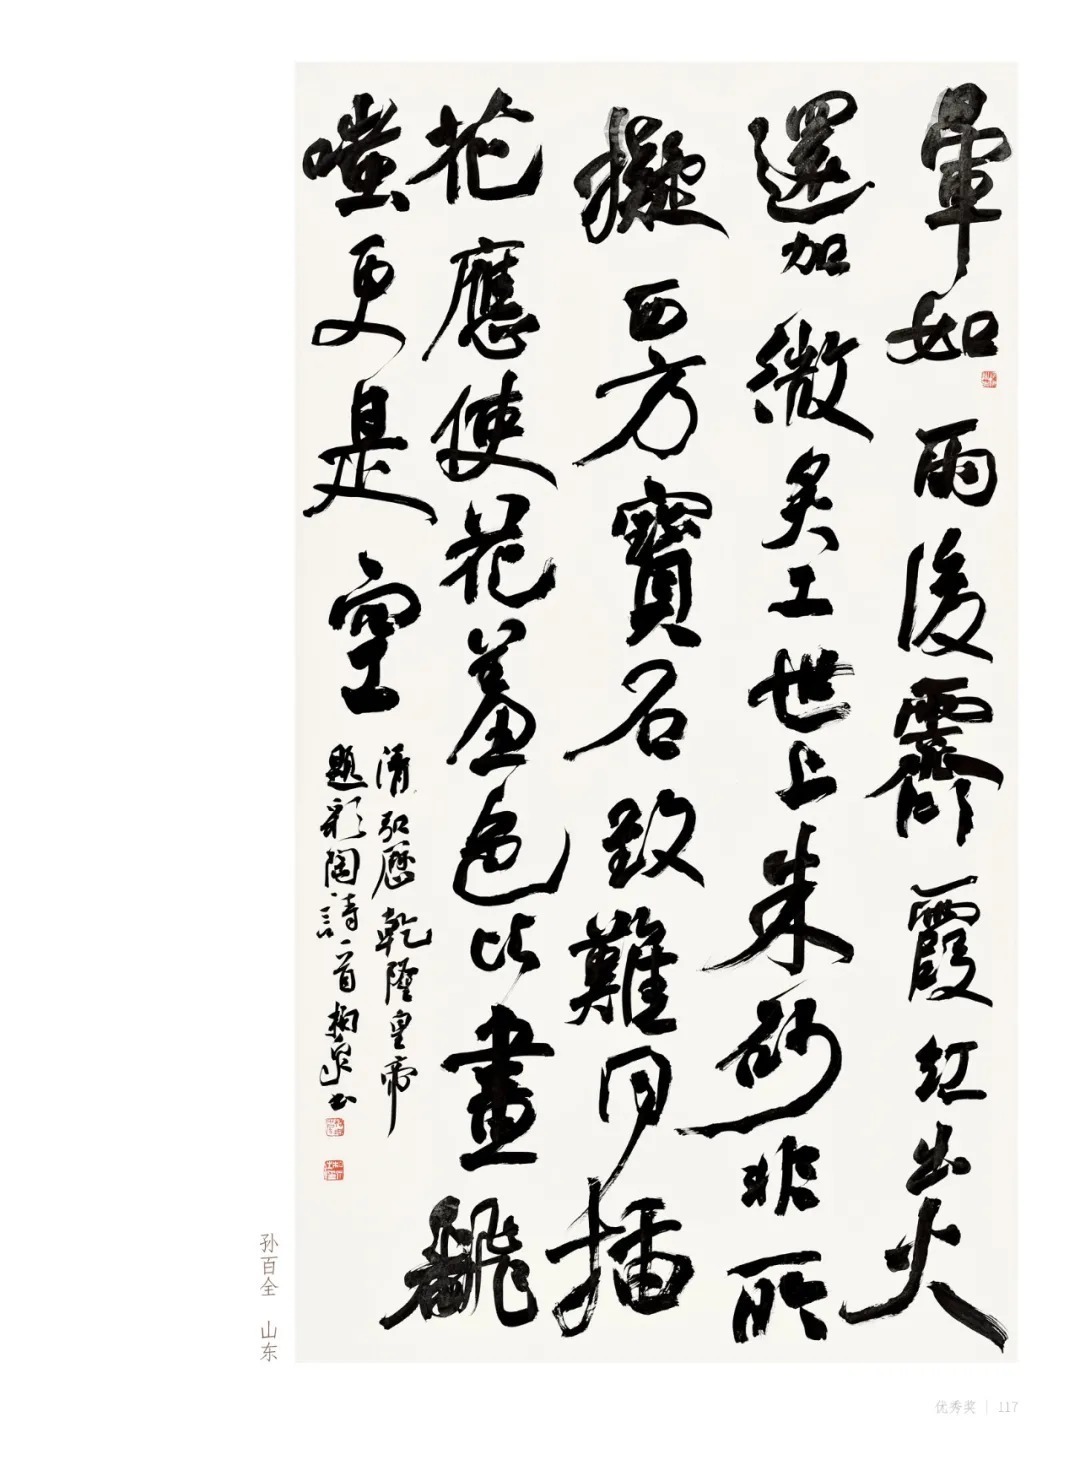 暈如雨後霽霞紅出火
還加微炙工世上朱砂非所
擬西方寶石致難同插
花應使花羞色比畫飜
嗤更是空
清弘曆乾隆皇帝
題彩陶詩一首柏泉书
孙百全 山东
优秀奖 | 117